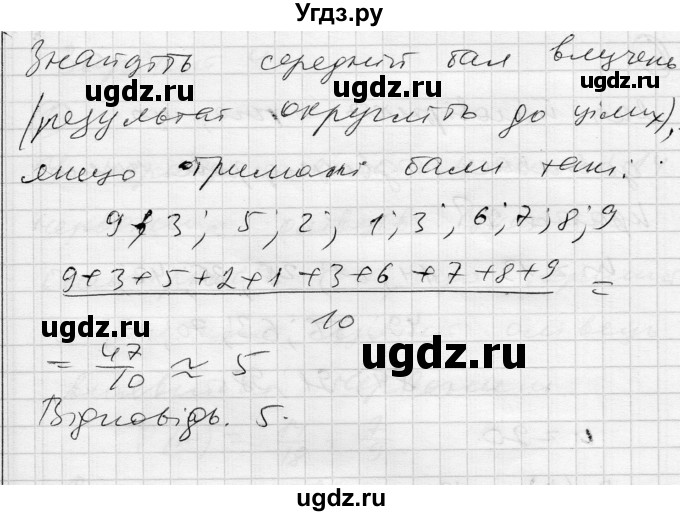 Угдз.ру
Знайдіть середній бал влучень
ugdz.ru ugdz.ru
(результат округліть до цілих),
якщо отримані бали такі:
9; 3; 5; 2; 1; 3; 6; 7; 8; 9
9+3+5+2+1+3+6+7+8+9 =
10
ugdz.ru ugdz.ru
= 47/10 ≈ 5
Відповідь. 5.
ugdz.ru ugdz.ru
ugdz.ru